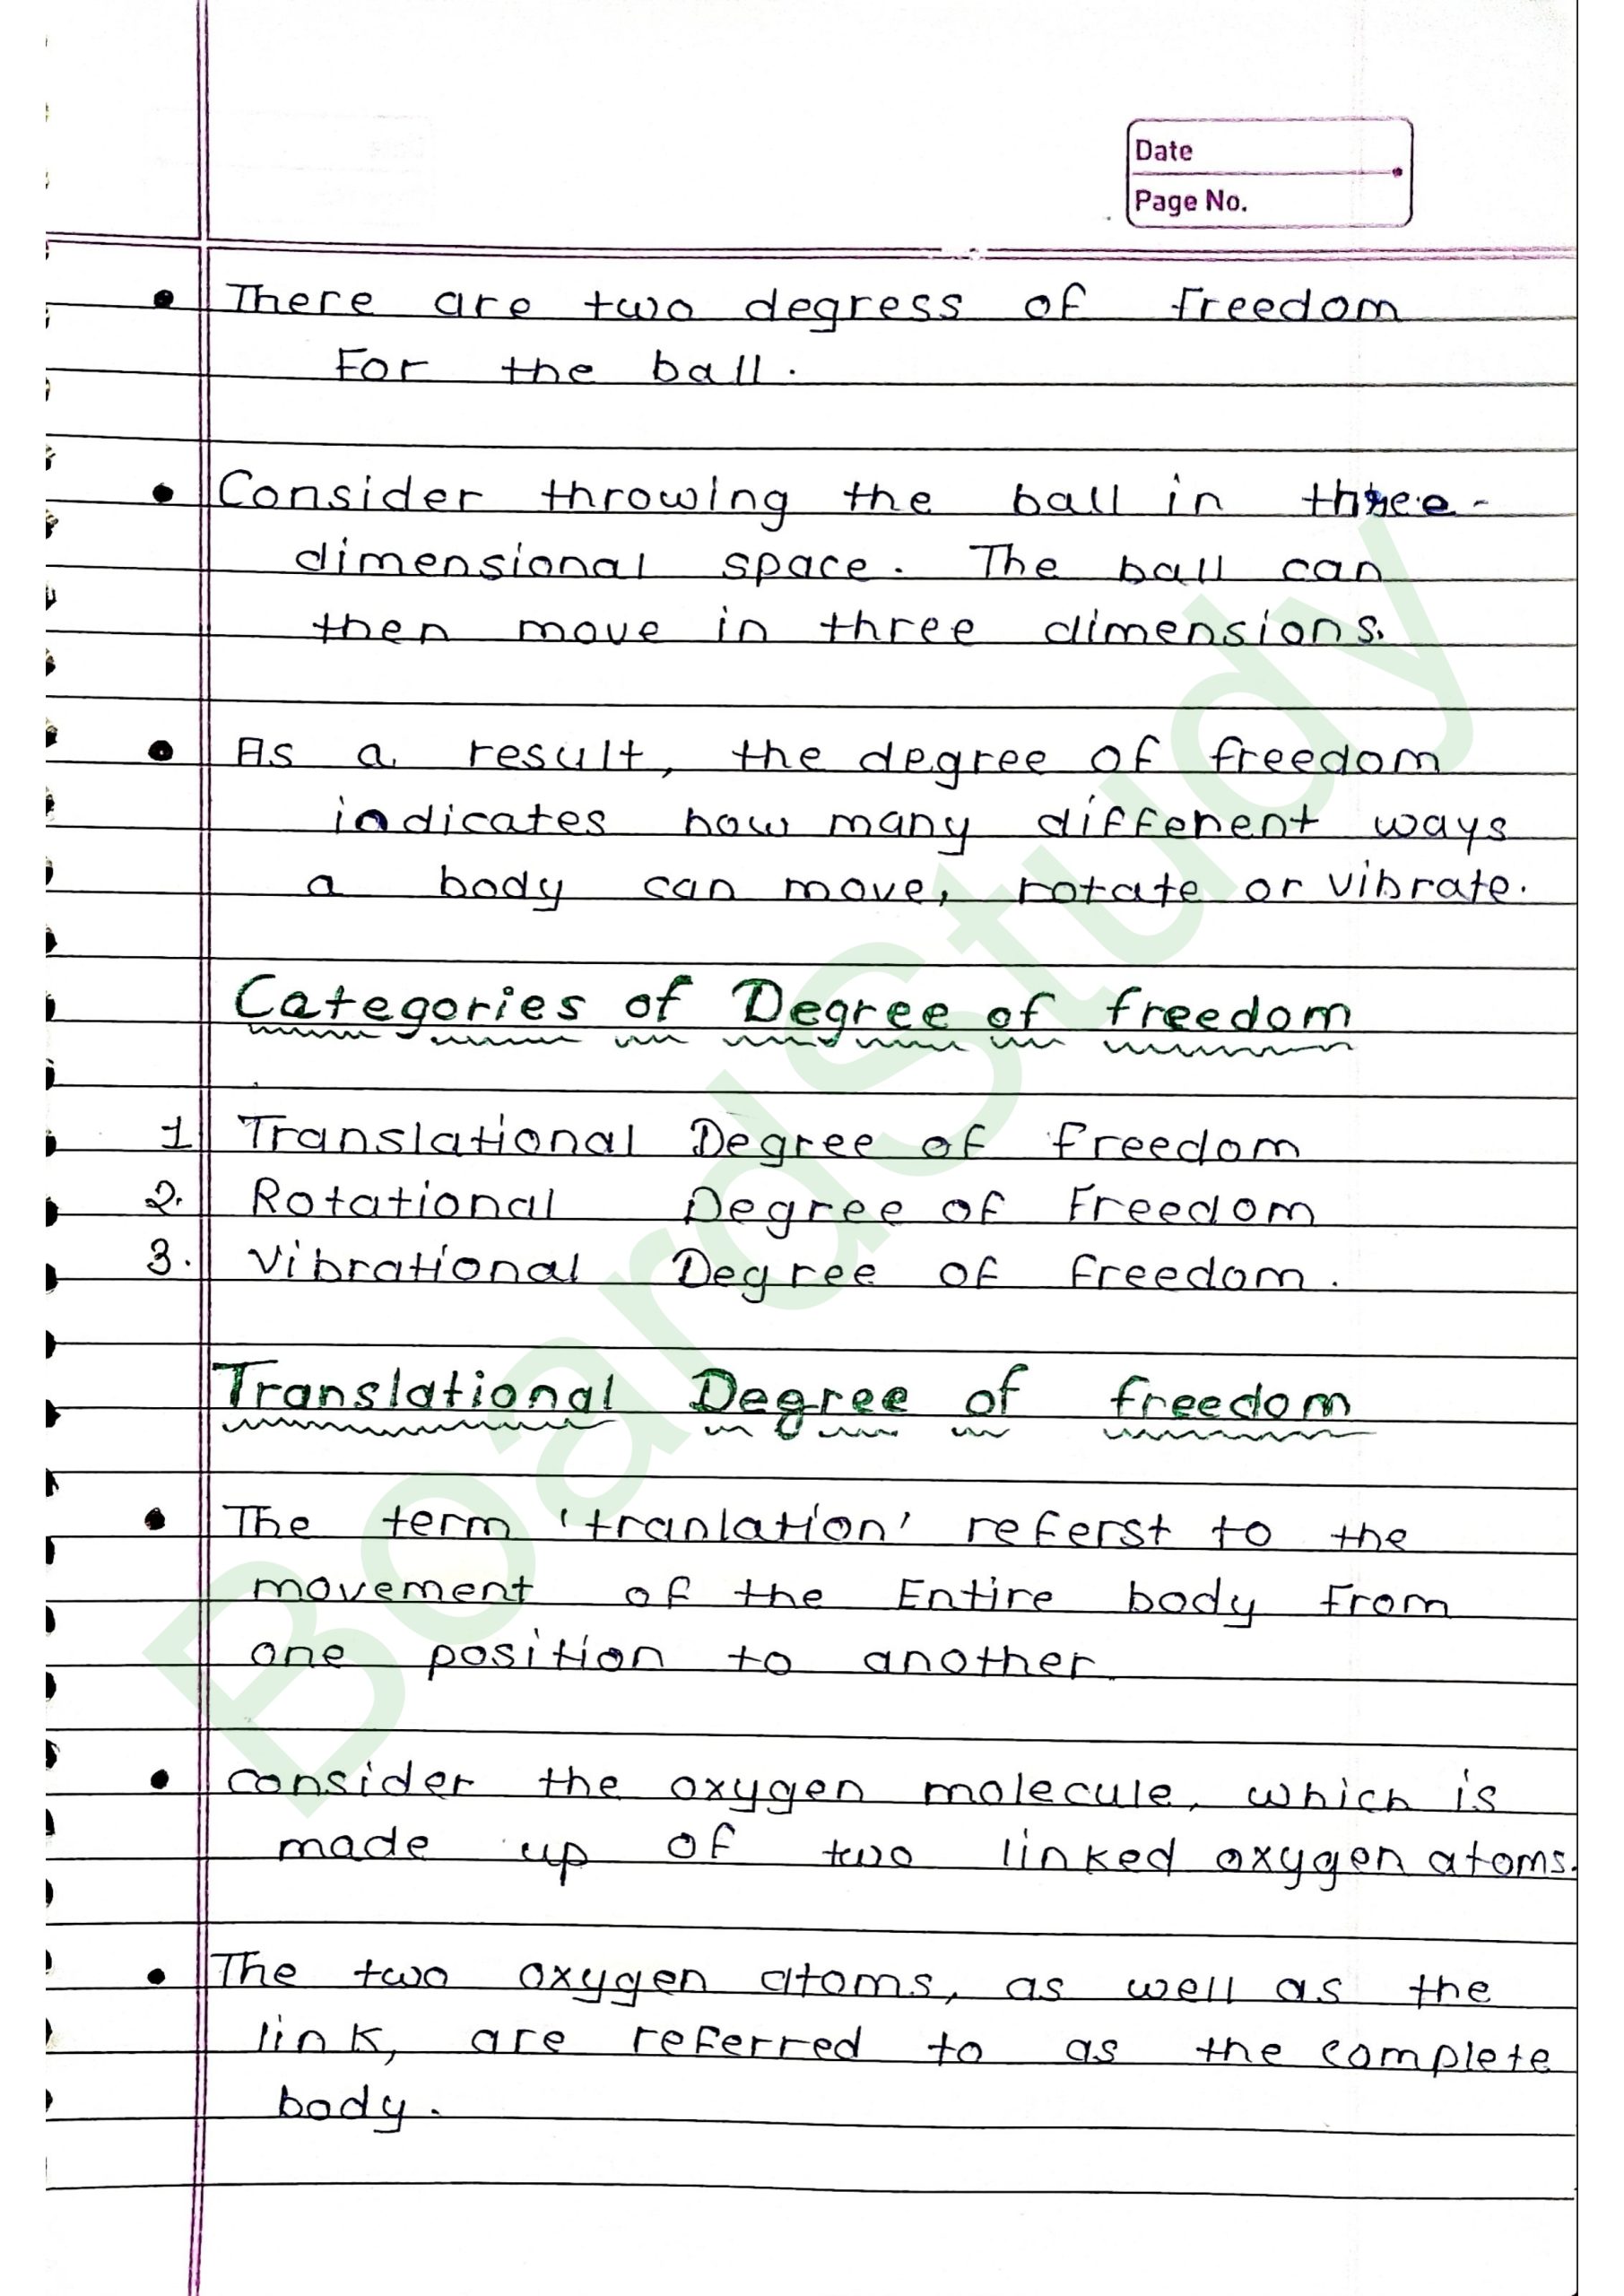 Date
Page No.
• There are two degress of freedom
For the ball.
• Consider throwing the ball in three-
dimensional space. The ball can
then move in three dimensions.
• As a result, the degree of freedom
indicates how many different ways
a body can move, rotate or vibrate.
Categories of Degree of freedom
1 Translational Degree of freedom
2. Rotational Degree of Freedom
3. Vibrational Degree of freedom.
Translational Degree of freedom
• The term 'tranlation' referst to the
movement of the Entire body from
one position to another.
• consider the oxygen molecule, which is
made up of two linked oxygen atoms.
• The two oxygen atoms, as well as the
link, are referred to as the complete
body.
BoardStudy